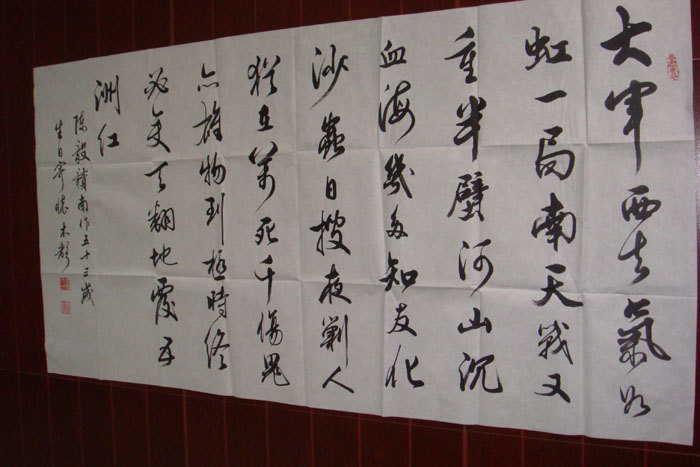 大軍西去氣如
虹一局南天戰又
重半壁河山沉
血海幾多知友化
沙蟲日搜夜剿人
猶在萬死千傷鬼
亦雄物到極時終
必變天翻地覆五
洲红
陳毅贛南作五十三歲
生日寄懷